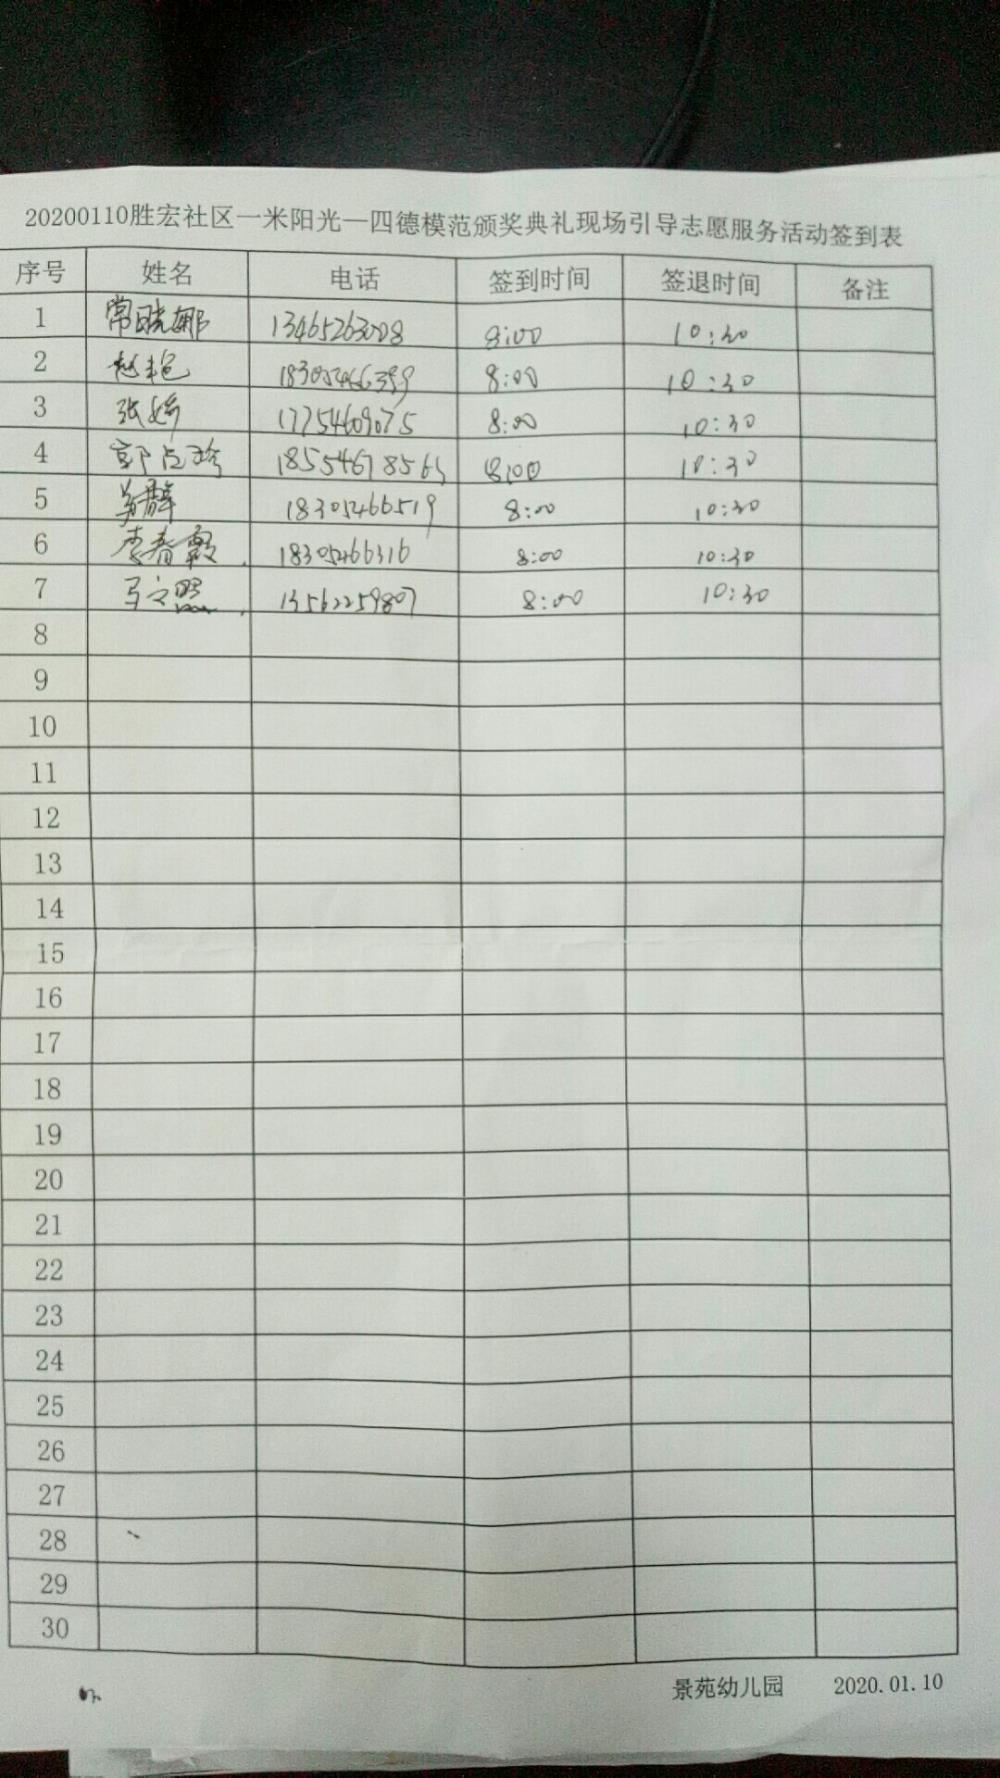 20200110胜宏社区一米阳光—四德模范颁奖典礼现场引导志愿服务活动签到表
序号 姓名 电话 签到时间 签退时间 备注
1 常晓娜 13465263028 8:00 10:30
2 赵艳 18305466389 8:00 10:30
3 张娇 17754609075 8:00 10:30
4 18554678565 8:00 10:30
5 18305466519 8:00 10:30
6 李春霞 18305466316 8:00 10:30
7 马文照 13562259807 8:00 10:30
8
9
10
11
12
13
14
15
16
17
18
19
20
21
22
23
24
25
26
27
28
29
30
景苑幼儿园 2020.01.10